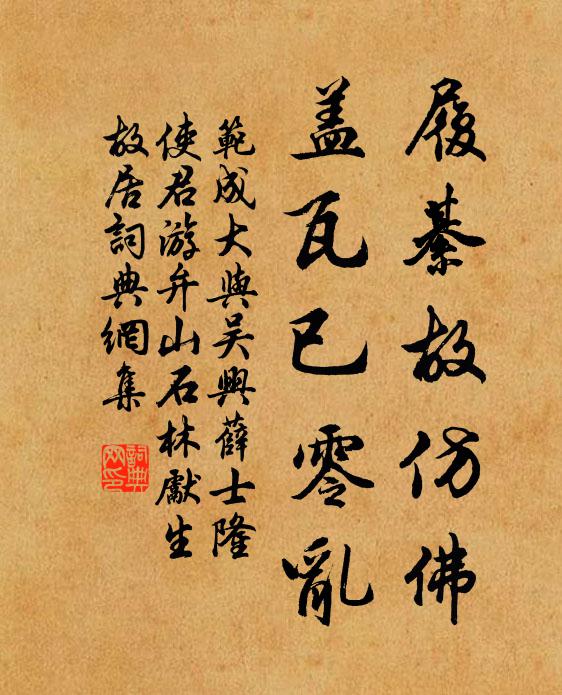 履綦故仿佛
盖瓦已零亂
範成大與吴興薛士隆
使君游弁山石林獻生
故居詞典網集
詞典網印